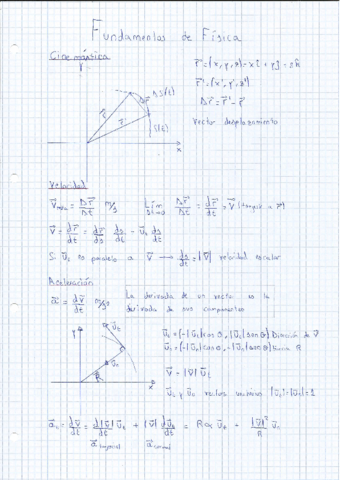 Fundamentos de Física
Cinemática
r⃗ = (x, y, z) = xî + yĵ + zk̂
r⃗' = (x', y', z')
Δr⃗ = r⃗' - r⃗
Vector desplazamiento
Y
ΔS(t)
Δr⃗
r⃗'
r⃗
S(t)
x
Velocidad
V⃗ = Δr⃗/Δt m/s Lim Δt→0 Δr⃗/Δt = dr⃗/dt = V⃗
V⃗ = dr⃗/dt = dr⃗/ds ds/dt = u⃗t ds/dt
Si u⃗t es paralelo a V⃗ → ds/dt = |V⃗| velocidad escalar
Aceleración
a⃗ = dv⃗/dt La derivada de un vector es la
derivada de sus componentes
Y
u⃗t
u⃗n
R
x
Dirección de V⃗
V⃗ = |V⃗| u⃗t
u⃗t y u⃗n vectores unitarios |u⃗t|=|u⃗n|=1
= dv⃗/dt = d|V⃗|/dt u⃗t + |V⃗| du⃗t/dt = Rα u⃗t + |V⃗|²/R u⃗n
a⃗ tangencial a⃗ normal